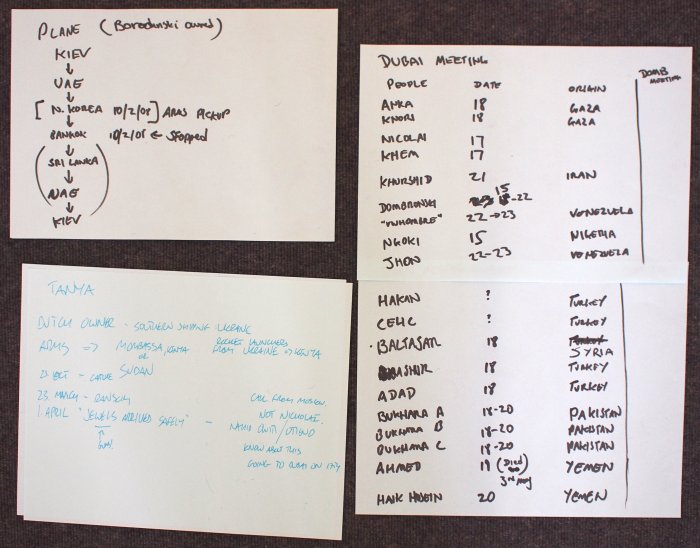 PLANE (Borodinski owned)
KIEV
↓
UAE
↓
[N. KOREA 10/2/08] ARMS PICKUP
↓
BANKOK 10/2/08 ← STOPPED
↓
(SRI LANKA
↓
UAE
↓
KIEV)
DUBAI MEETING
DOMB MEETING
PEOPLE DATE ORIGIN
ANKA 18 GAZA
KNORI 18 GAZA
NICOLAI 17
KHEM 17
KHURSHID 21 IRAN
DOMBRONSKI 15-22
22→23 VENEZUELA
NGOKI 15 NIGERIA
JHON 22-23 VENEZUELA
HAKAN ? TURKEY
CELIC ? TURKEY
BALTASAR 18 SYRIA
ASHIR 18 TURKEY
ADAD 18 TURKEY
BUKHARA A 18-20 PAKISTAN
BUKHARA B 18-20 PAKISTAN
BUKHARA C 18-20 PAKISTAN
AHMED 19 (Died 3rd May) YEMEN
HAIK HUSEIN 20 YEMEN
TANYA
DUTCH OWNER - SOUTHERN SHIPPING UKRAINE
ARMS => MOMBASSA, KENYA or SUDAN
ROCKET LAUNCHERS FROM UKRAINE => KENYA
23. MARCH - RANSOM
1 APRIL "JEWELS ARRIVED SAFELY" -
CALL FROM MOSCOW
NOT NICHOLAI.
KNOW ABOUT THIS
GOING TO DUBAI ON 17th